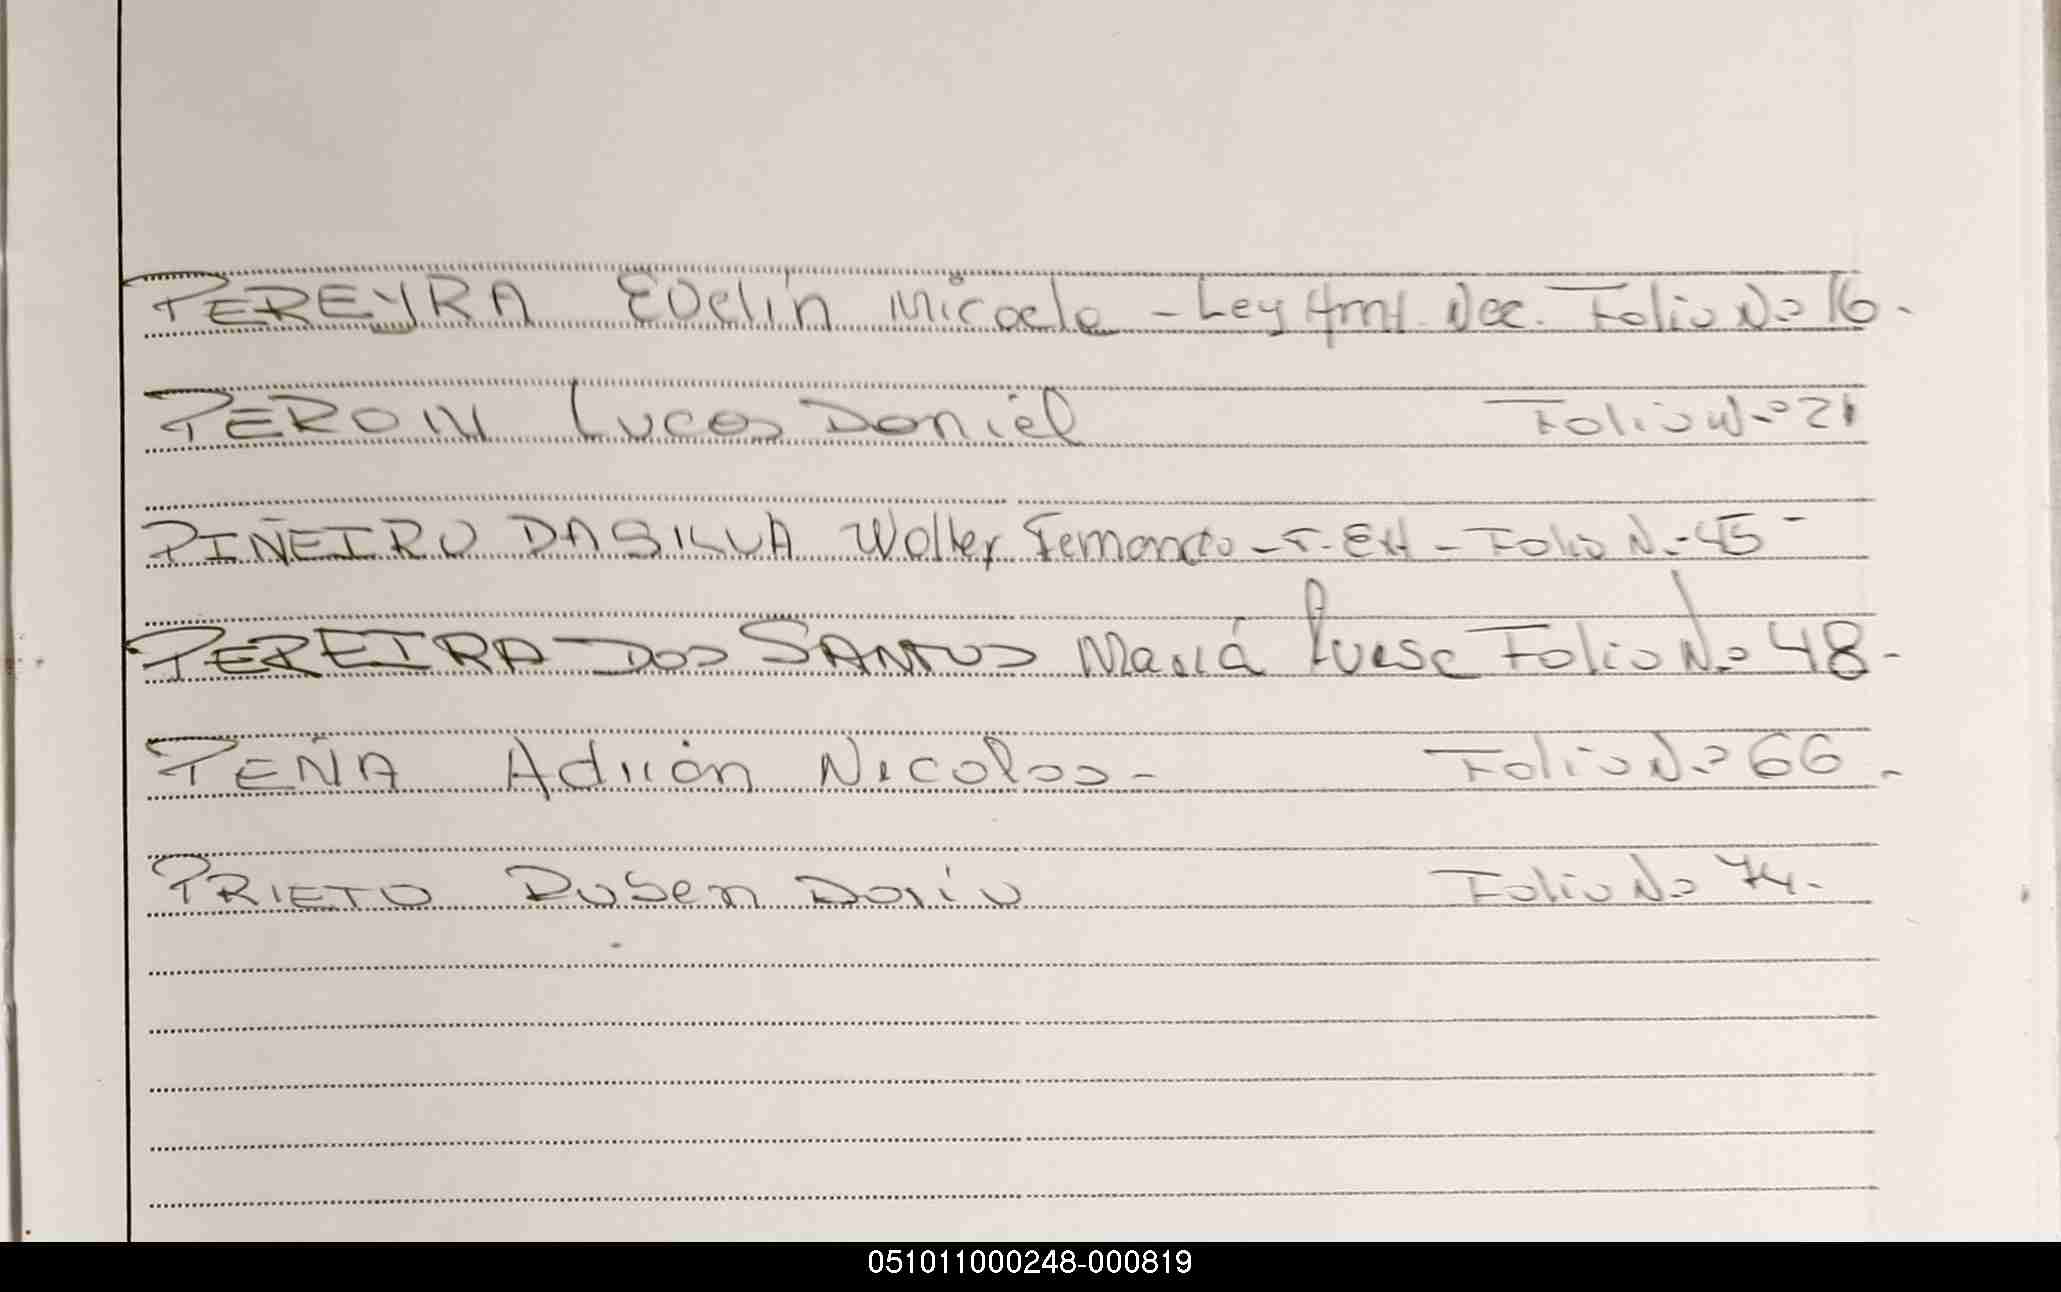 PEREYRA Evelin Micaela - Ley Amt. Nac. Folio No 16.
PERON Lucas Daniel Folio No 21
PIÑEIRO DASILVA Walter Fernando - F. Ext - Folio No 45 -
PEREIRA DOS SANTOS María Folio No 48 -
PEÑA Adrián Nicolas - Folio No 66 -
PRIETO Ruben Dario Folio No 74.
051011000248-000819